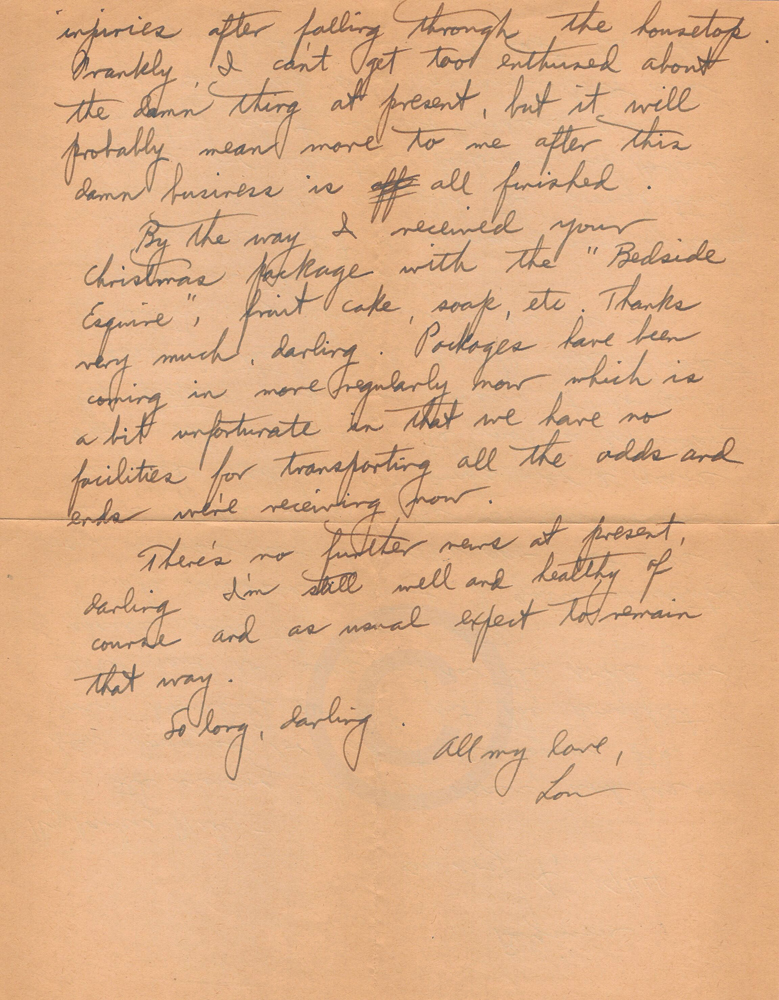 injuries after falling through the housetop.
Frankly, I can't get too enthused about
the damn thing at present, but it will
probably mean more to me after this
damn business is off all finished.
By the way I received your
Christmas package with the "Bedside
Esquire", fruit cake, soap, etc. Thanks
very much, darling. Packages have been
coming in more regularly now which is
a bit unfortunate in that we have no
facilities for transporting all the odds and
ends we're receiving now.
There's no further news at present,
darling I'm still well and healthy of
course and as usual expect to remain
that way.
So long, darling.
All my love,
Lou